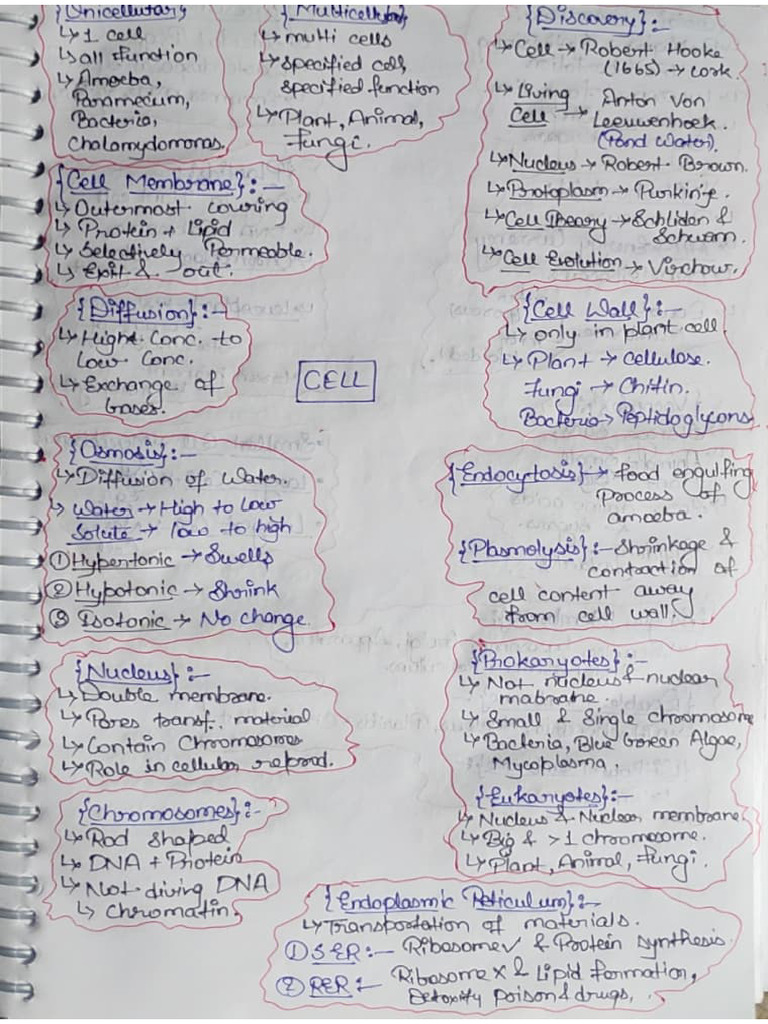 {Unicellular}
↳ 1 cell
↳ all function
↳ Amoeba,
Paramecium,
Bacteria,
Chalamydomonas.
{Multicellular}
↳ multi cells
↳ specified cell,
specified function
↳ Plant, Animal,
Fungi.
{Discovery}:-
↳ Cell → Robert Hooke
(1665) → cork.
↳ Living Cell → Anton Von
Leeuwenhoek.
(Pond Water).
↳ Nucleus → Robert Brown.
↳ Protoplasm → Purkinje.
↳ Cell Theory → Schliden &
Schwam.
↳ Cell Evolution → Virchow.
{Cell Membrane}:-
↳ Outermost couring
↳ Protein + Lipid
↳ Selectively Permeable.
↳ Exit & out.
{Diffusion}:-
↳ Hight Conc. to
Low Conc.
↳ Exchange of
gases.
CELL
{Cell Wall}:-
↳ only in plant cell
↳ Plant → cellulose.
Fungi → Chitin.
Bacteria → Peptidoglycons
{Osmosis}:-
↳ Diffusion of Water.
↳ Water → High to low
Solute → low to high
① Hypertonic → Swells
② Hypotonic → Shrink
③ Isotonic → No change.
{Endocytosis} → food engulfing
process of
amoeba.
{Plasmolysis}:- Shrinkage &
contraction of
cell content away
from cell wall.
{Nucleus}:-
↳ Double membrane.
↳ Pores transf. material
↳ Contain Chromosomes
↳ Role in cellular reprod.
{Prokaryotes}:-
↳ Not nucleus & nuclear
mabrane.
↳ Small & Single chromosome
↳ Bacteria, Blue Green Algae,
Mycoplasma.
{Eukaryotes}:-
↳ Nucleus & Nuclear membrane.
↳ Big & >1 chromosome.
↳ Plant, Animal, Fungi.
{Chromosomes}:-
↳ Rod shaped
↳ DNA + Protein
↳ Not diving DNA
↳ Chromatin.
{Endoplasmic Reticulum}:-
↳ Transportation of materials.
① SER:- Ribosome✓ & Protein synthesis.
② RER:- Ribosome X & Lipid formation,
Detoxify poison & drugs.